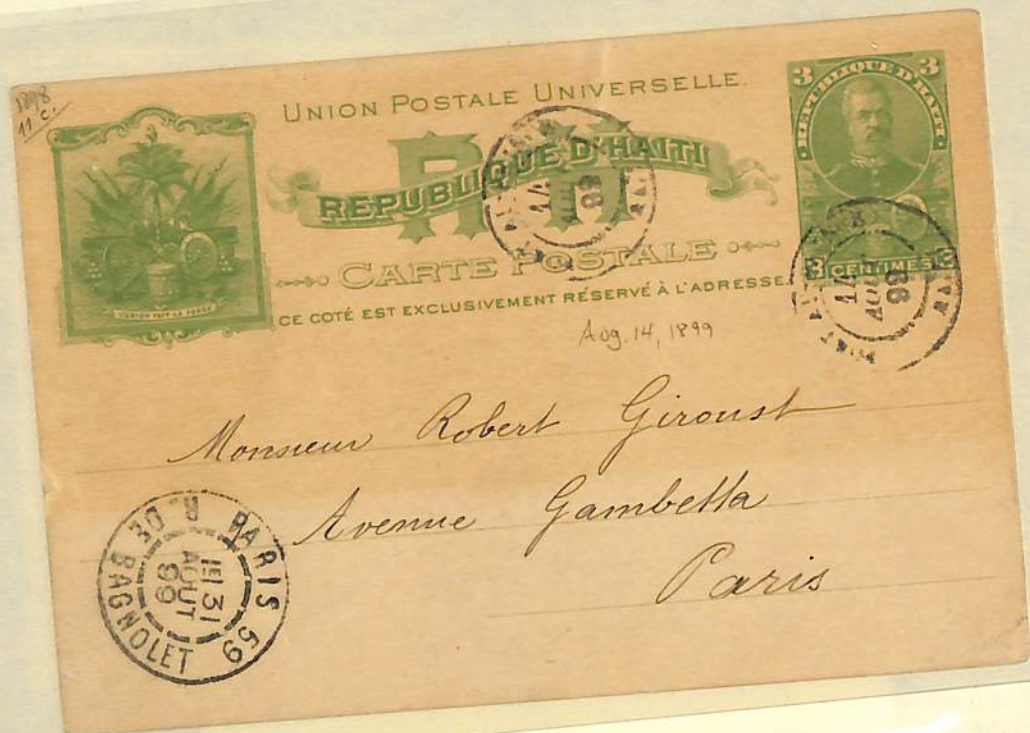 1898
11 c.
UNION POSTALE UNIVERSELLE.
RH
REPUBLIQUE D'HAITI
CARTE POSTALE
CE COTÉ EST EXCLUSIVEMENT RÉSERVÉ À L'ADRESSE
L'UNION FAIT LA FORCE
3 3
REPUBLIQUE D'HAITI
3 CENTIMES 3
14
AOUT
Aug. 14, 1899
Monsieur Robert Giroust
Avenue Gambetta
Paris
PARIS 59
R. DE BAGNOLET
1E 31
AOUT
99